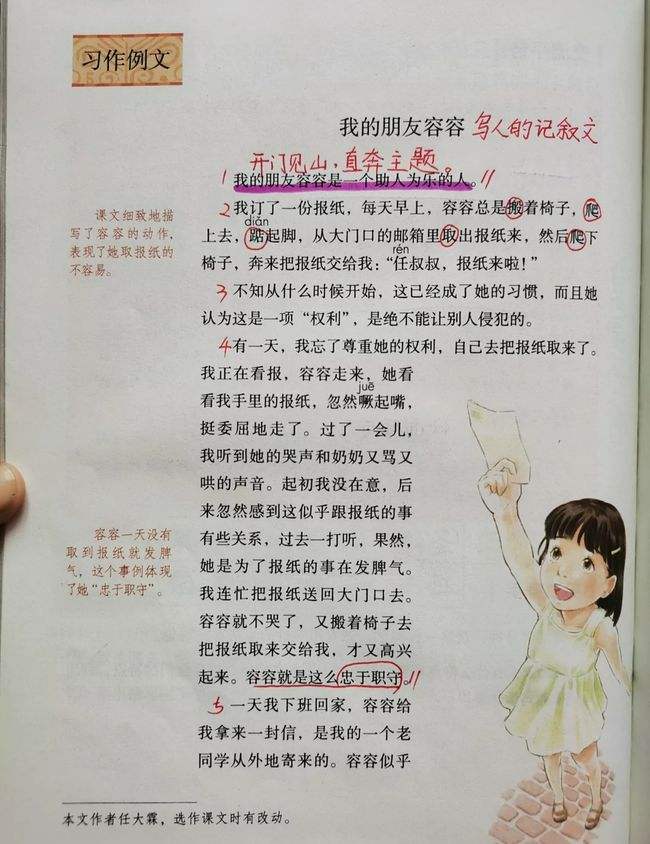 习作例文
我的朋友容容 写人的记叙文
开门见山,直奔主题。
1 我的朋友容容是一个助人为乐的人。
2 我订了一份报纸，每天早上，容容总是搬着椅子，爬
diǎn
上去，踮起脚，从大门口的邮箱里取出报纸来，然后爬下
rén
椅子，奔来把报纸交给我：“任叔叔，报纸来啦！”
课文细致地描
写了容容的动作，
表现了她取报纸的
不容易。
3 不知从什么时候开始，这已经成了她的习惯，而且她
认为这是一项“权利”，是绝不能让别人侵犯的。
4 有一天，我忘了尊重她的权利，自己去把报纸取来了。
我正在看报，容容走来，她看
juē
看我手里的报纸，忽然噘起嘴，
挺委屈地走了。过了一会儿，
我听到她的哭声和奶奶又骂又
哄的声音。起初我没在意，后
来忽然感到这似乎跟报纸的事
有些关系，过去一打听，果然，
她是为了报纸的事在发脾气。
我连忙把报纸送回大门口去。
容容就不哭了，又搬着椅子去
把报纸取来交给我，才又高兴
起来。容容就是这么忠于职守。
容容一天没有
取到报纸就发脾
气，这个事例体现
了她“忠于职守”。
5 一天我下班回家，容容给
我拿来一封信，是我的一个老
同学从外地寄来的。容容似乎
本文作者任大霖，选作课文时有改动。